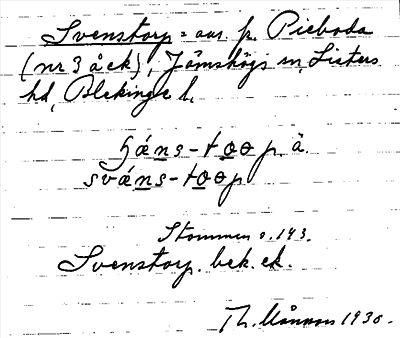 Svenstorp = avs. p. Pieboda
(nr 3 å ek), Jämshögs sn, Listers
hd, Blekinge l.
háns-toop. ä.
sváns-toop
Stommen s. 143.
Svenstorp. bek. ek.
Th. Månsson 1930.